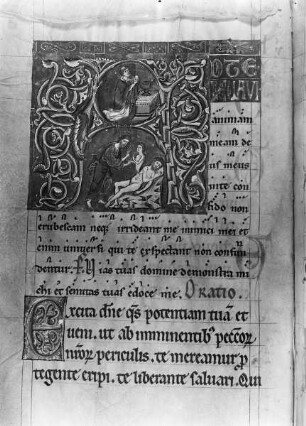 D TE
LEVAVI
animam
meam de
us meus
in te con
fido non
erubescam neq; irrideant me inimici mei et
enim universi qui te expectant non confun
dentur. Vias tuas domine demonstra mi
chi et semitas tuas edoce me. Oratio
Excita dñe qs potentiam tuã et
veni. ut ab imminentib; peccõr
nr̃or periculis. te mereamur p
tegente eripi. te liberante salvari. Qui